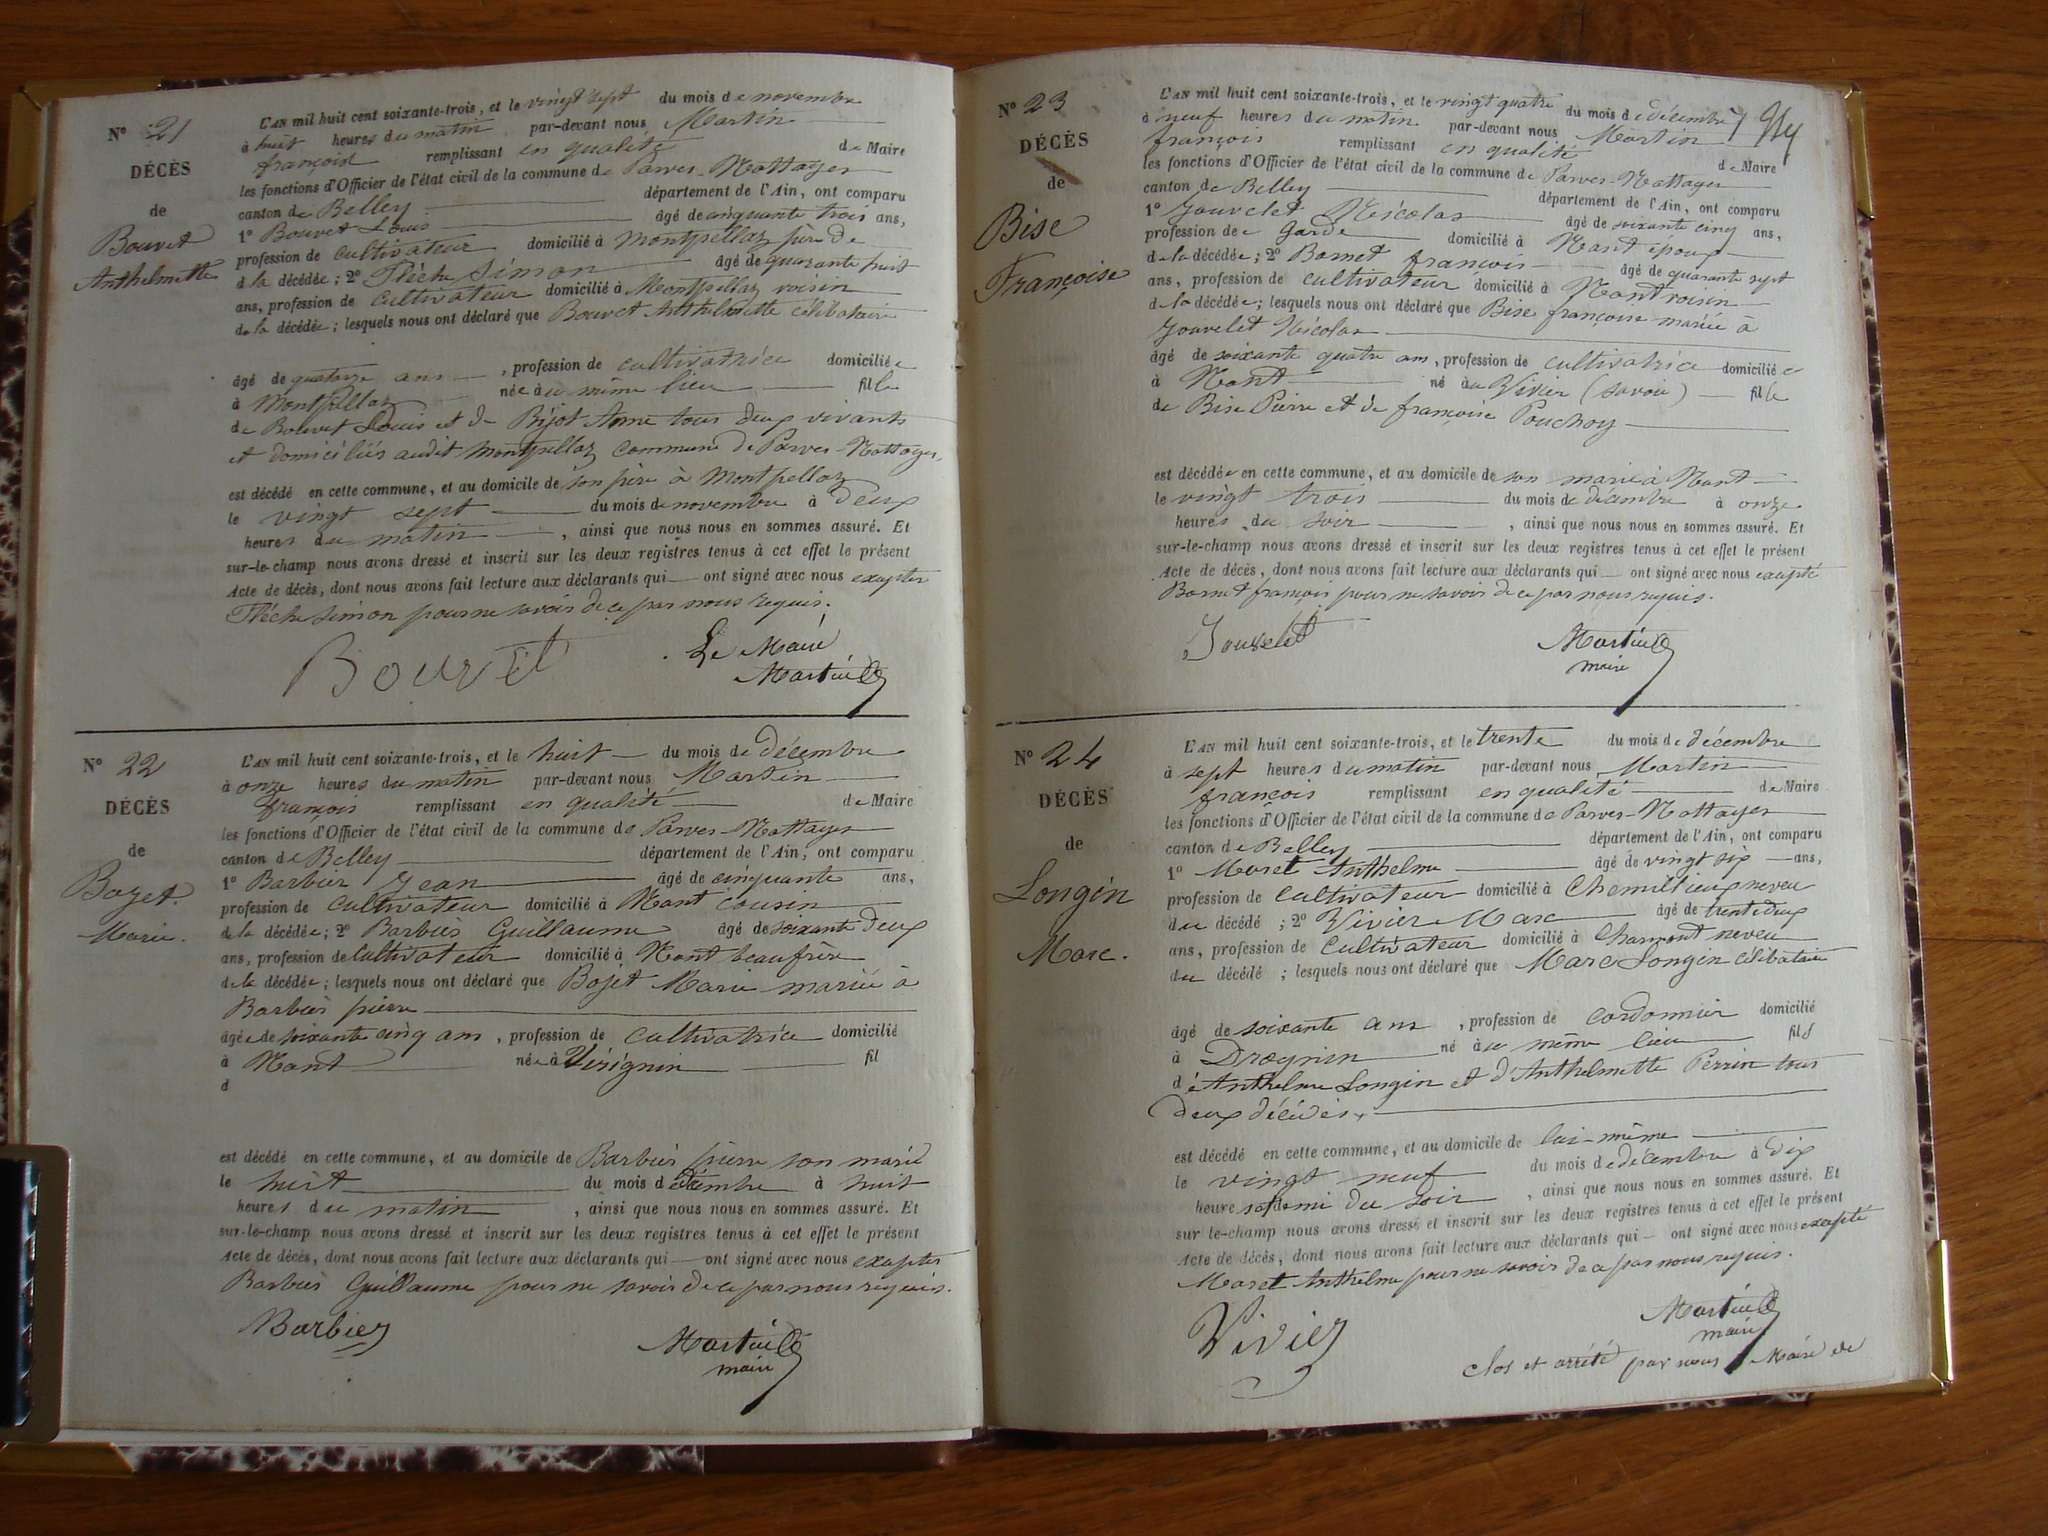 N° 21
DÉCÈS
de
Bouvet
Anthelmette
L'AN mil huit cent soixante-trois, et le vingt sept du mois de novembre
à huit heures du matin par-devant nous Martin
françois remplissant en qualité de Maire
les fonctions d'Officier de l'état civil de la commune de Parves-Nattages
canton de Belley département de l'Ain, ont comparu
1° Bouvet Louis âgé de cinquante trois ans,
profession de cultivateur domicilié à Montpellaz père de
d la décédée; 2° Flèche Simon âgé de quarante huit
ans, profession de cultivateur domicilié à Montpellaz voisin
de la décédée; lesquels nous ont déclaré que Bouvet Anthelmette célibataire
âgé de quatorze ans, profession de cultivatrice domiciliée
à Montpellaz née au même lieu fille
de Bouvet Louis et de Bijot Anne tous deux vivants
et domiciliés audit Montpellaz commune de Parves-Nattages,
est décédé en cette commune, et au domicile de son père à Montpellaz
le vingt sept du mois de novembre à deux
heures du matin, ainsi que nous nous en sommes assuré. Et
sur-le-champ nous avons dressé et inscrit sur les deux registres tenus à cet effet le présent
Acte de décès, dont nous avons fait lecture aux déclarants qui ont signé avec nous exeptés
Flèche Simon pour ne savoir de ce par nous requis.
Bouvet
Le Maire
Martin
N° 22
DÉCÈS
de
Bozet
Marie.
L'AN mil huit cent soixante-trois, et le huit du mois de décembre
à onze heures du matin par-devant nous Martin
françois remplissant en qualité de Maire
les fonctions d'Officier de l'état civil de la commune de Parves-Nattages
canton de Belley département de l'Ain, ont comparu
1° Barbier Jean âgé de cinquante ans,
profession de cultivateur domicilié à Nant cousin
de la décédée; 2° Barbier Guillaume âgé de soixante deux
ans, profession de cultivateur domicilié à Nant beau frère
de la décédée; lesquels nous ont déclaré que Bojet Marie mariée à
Barbier pierre
âgée de soixante cinq ans, profession de cultivatrice domicilié
à Nant née à Virignin fil
d
est décédé en cette commune, et au domicile de Barbier pierre son marie
le huit du mois décembre à huit
heures du matin, ainsi que nous nous en sommes assuré. Et
sur-le-champ nous avons dressé et inscrit sur les deux registres tenus à cet effet le présent
Acte de décès, dont nous avons fait lecture aux déclarants qui ont signé avec nous exeptés
Barbier Guillaume pour ne savoir de ce par nous requis.
Barbier
Martin
maire
N° 23
DÉCÈS
de
Bise
Françoise
L'AN mil huit cent soixante-trois, et le vingt quatre du mois de décembre
à neuf heures du matin par-devant nous Martin
françois remplissant en qualité de Maire
les fonctions d'Officier de l'état civil de la commune de Parves-Nattages
canton de Belley département de l'Ain, ont comparu
1° Jouvelet Nicolas âgé de soixante cinq ans,
profession de Garde domicilié à Nant époux
de la décédée; 2° Bornet françois âgé de quarante sept
ans, profession de cultivateur domicilié à Nant voisin
de la décédée; lesquels nous ont déclaré que Bise françoise mariée à
Jouvelet Nicolas
âgé de soixante quatre ans, profession de cultivatrice domiciliée
à Nant né au Vivier (savoie) fille
de Bise Pierre et de françoise Pouchoy
est décédée en cette commune, et au domicile de son marie à Nant
le vingt trois du mois de décembre à onze
heures du soir, ainsi que nous nous en sommes assuré. Et
sur-le-champ nous avons dressé et inscrit sur les deux registres tenus à cet effet le présent
Acte de décès, dont nous avons fait lecture aux déclarants qui ont signé avec nous exepté
Bornet françois pour ne savoir de ce par nous requis.
Jouvelet
Martin
maire
N° 24
DÉCÈS
de
Longin
Marc.
L'AN mil huit cent soixante-trois, et le trente du mois de décembre
à sept heures du matin par-devant nous Martin
françois remplissant en qualité de Maire
les fonctions d'Officier de l'état civil de la commune de Parves-Nattages
canton de Belley département de l'Ain, ont comparu
1° Moret Anthelme âgé de vingt six ans,
profession de cultivateur domicilié à Chemillieux neveu
du décédé; 2° Vivier Marc âgé de trente deux
ans, profession de cultivateur domicilié à Charmont neveu
du décédé; lesquels nous ont déclaré que Marc Longin célibataire
âgé de soixante ans, profession de cordonnier domicilié
à Drægnin né au même lieu fils
d'Anthelme Longin et d'Anthelmette Perrin tous
deux décédés.
est décédé en cette commune, et au domicile de lui-même
le vingt neuf du mois de décembre à dix
heures et demi du soir, ainsi que nous nous en sommes assuré. Et
sur-le-champ nous avons dressé et inscrit sur les deux registres tenus à cet effet le présent
Acte de décès, dont nous avons fait lecture aux déclarants qui ont signé avec nous exepté
Moret Anthelme pour ne savoir de ce par nous requis.
Vivier
Martin
maire
clos et arrêté par nous Maire de